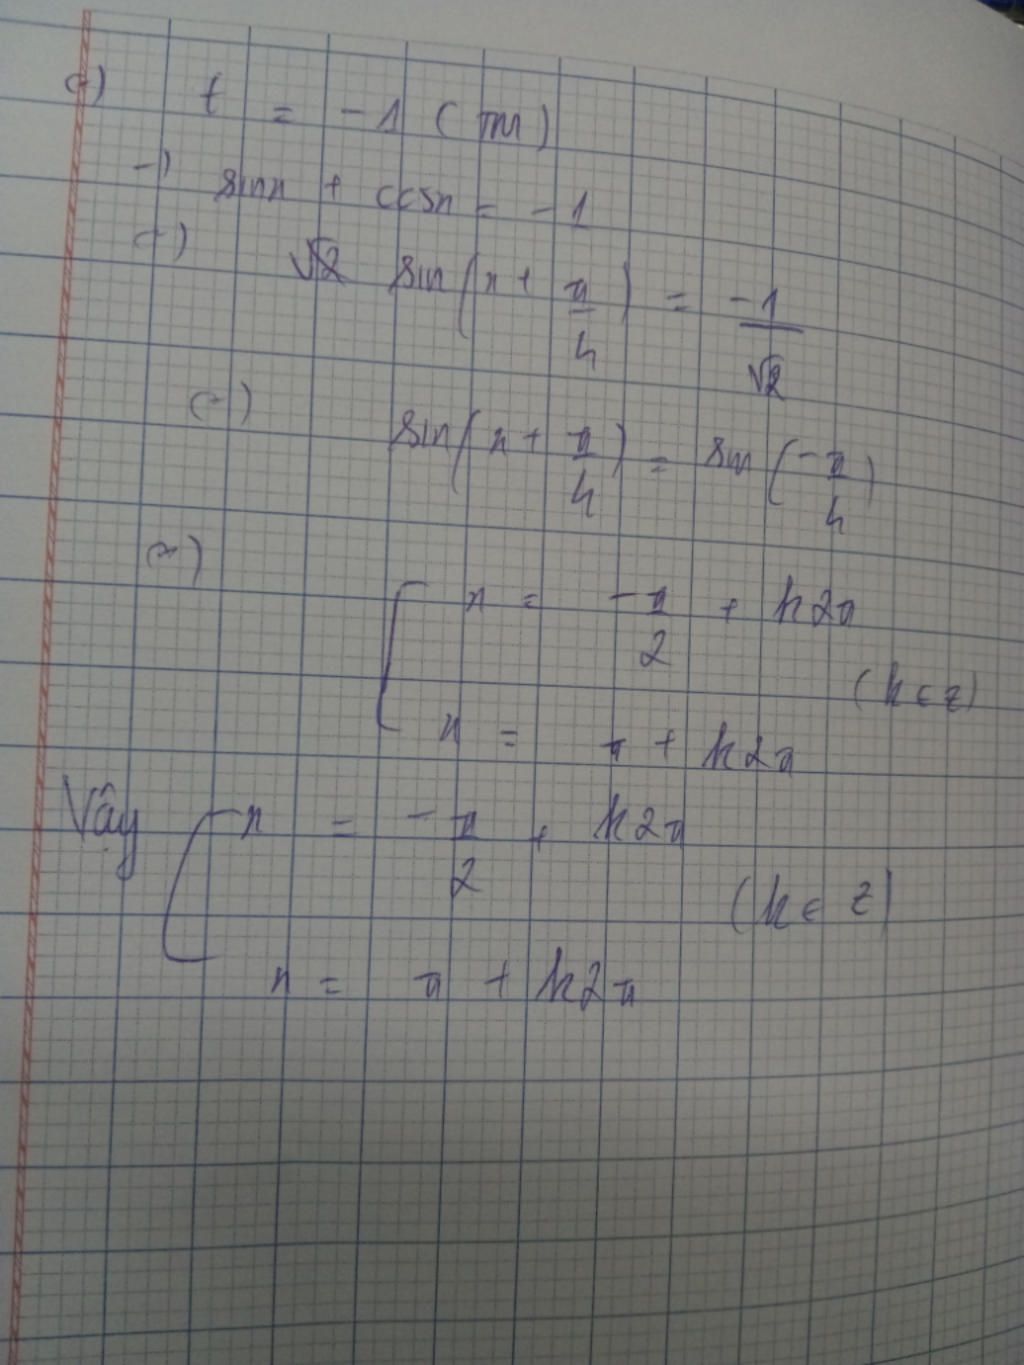 (-) t = -1 (TM)
-) sinx + cosx = -1
(-) √2 sin(x + π/4) = -1/√2
(-) sin(x + π/4) = sin(-π/4)
(-) [ x = -π/2 + k2π
(k ∈ Z)
x = π + k2π
Vậy [ x = -π/2 + k2π
(k ∈ Z)
x = π + k2π